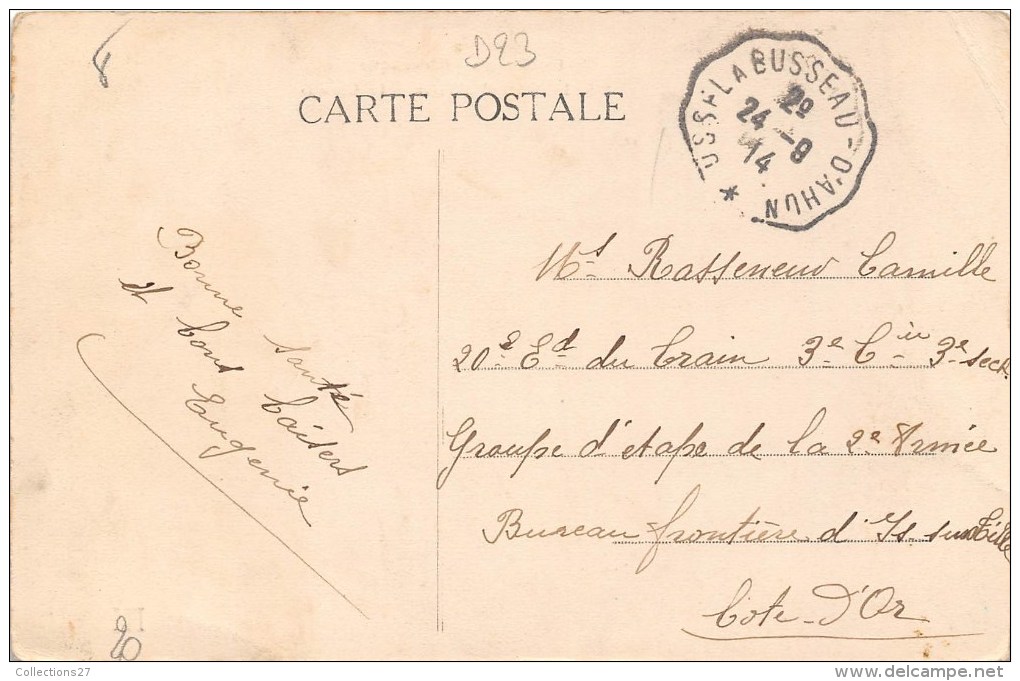 D23
CARTE POSTALE
USSEL A BUSSEAU-D'AHUN *
2e
24-9
14
Bonne santé
et bons baisers
Eugenie
Mr Rasseneur Camille
20e Ed du train 3e Cie 3e sect.
Groupe d'étape de la 2e Armée
Bureau frontière d'Is sur Tille
Côte-D'Or
20
Collections27
www.delcampe.net